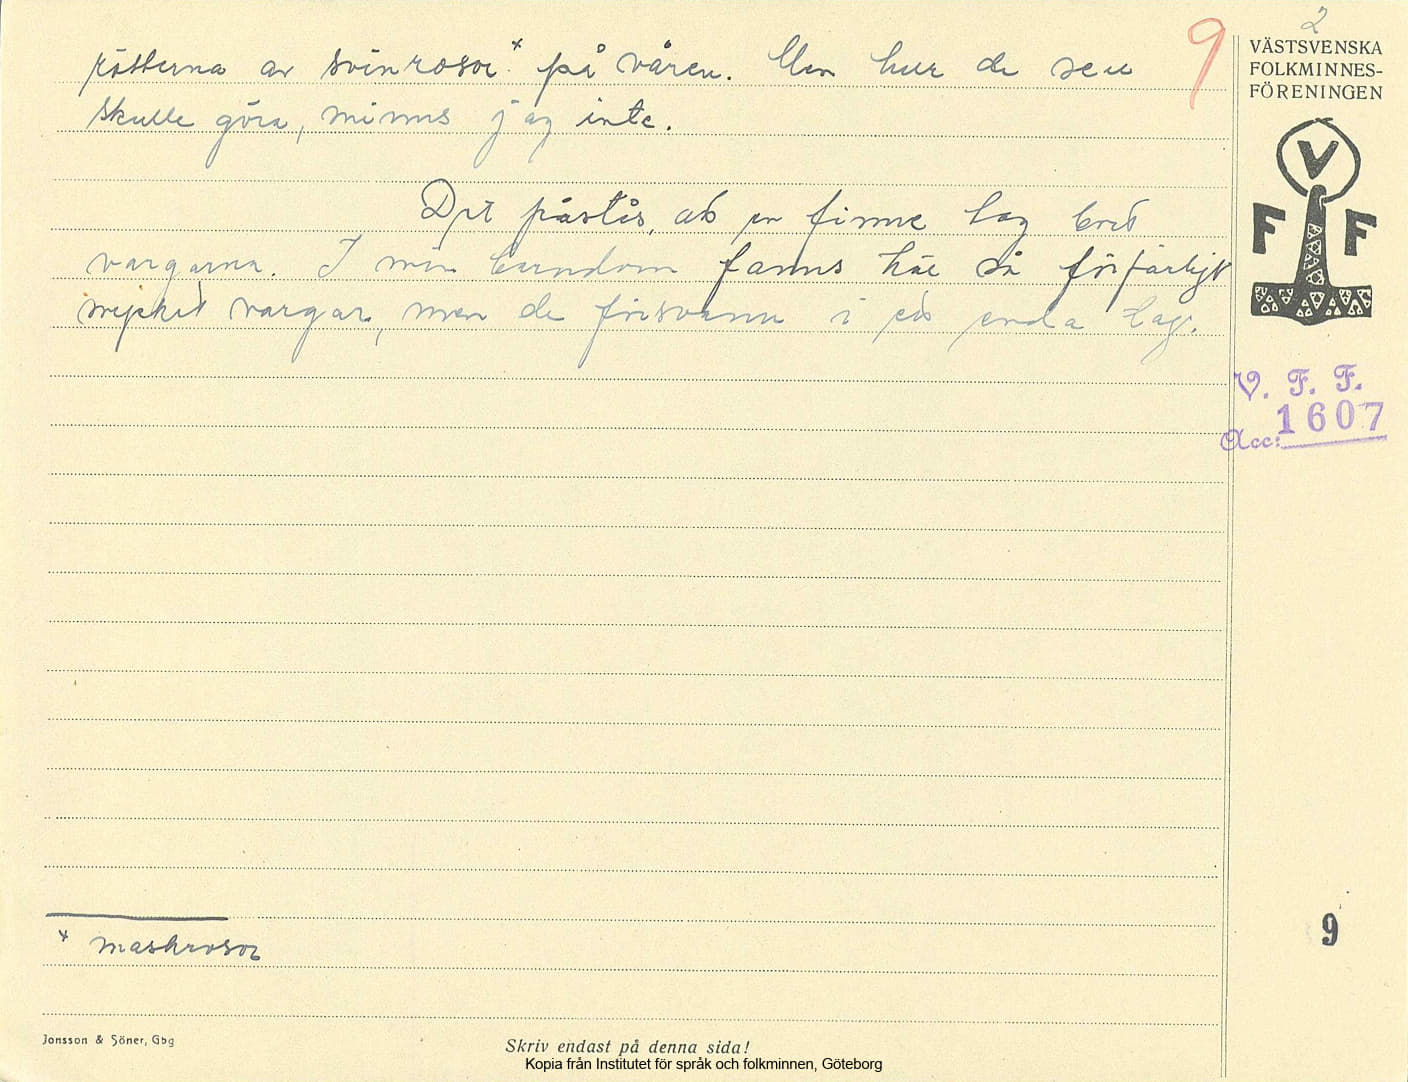 2
9
VÄSTSVENSKA
FOLKMINNES-
FÖRENINGEN
V
F F
rötterna av svinrosor* på våren. Men hur de sen
skulle göra, minns jag inte.
Det påstås, att en finne tog bort
vargarna. I min barndom fanns här så förfärligt
mycket vargar, men de försvann i ett enda tag.
V. F. F.
Acc: 1607
* maskrosor
9
Jonsson & Söner, Gbg
Skriv endast på denna sida!
Kopia från Institutet för språk och folkminnen, Göteborg